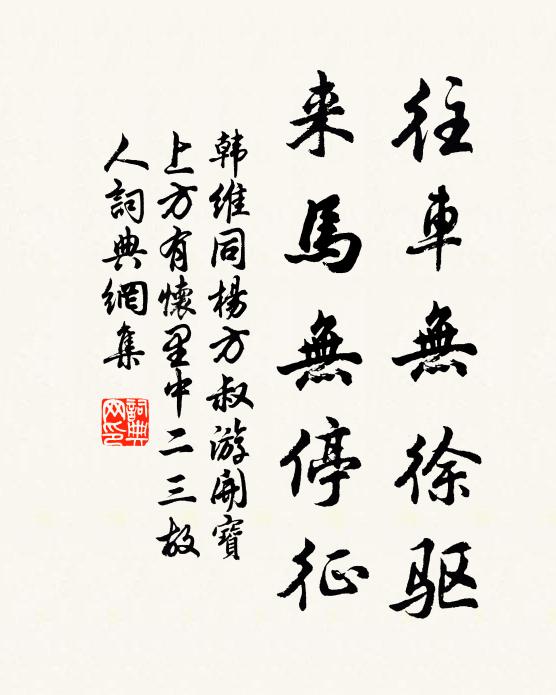 往車無徐驱
来馬無停征
韩維同楊方叔游開寶
上方有懷里中二三故
人詞典網集
詞典
网印